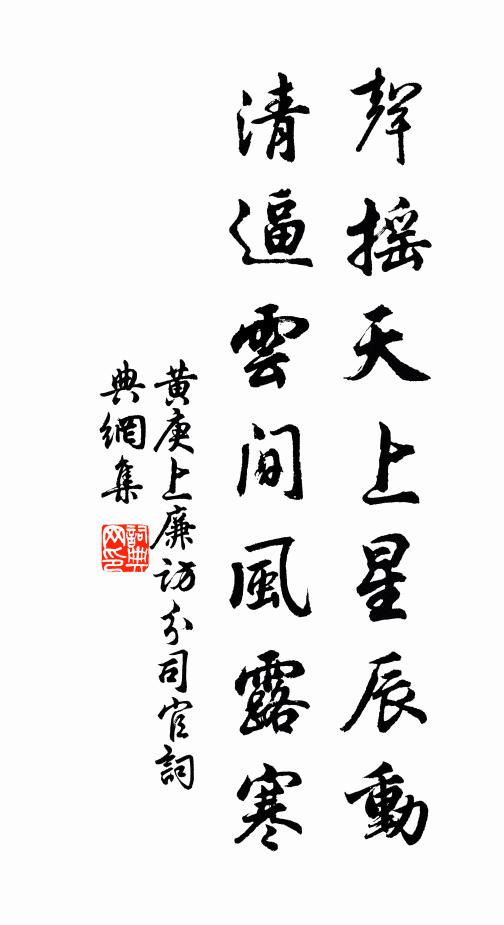 聲搖天上星辰動
清逼雲間風露寒
黃庚上廉訪分司官詞
典網集
詞典網印